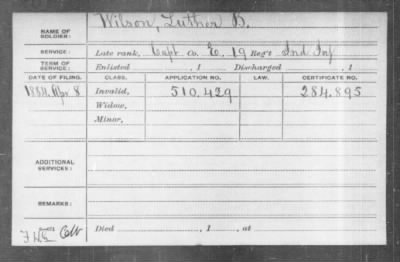 NAME OF SOLDIER: Wilson, Luther B.
SERVICE: Late rank, Capt. Co. E, 19 Reg't Ind Inf
TERM OF SERVICE: Enlisted , 1 Discharged , 1
DATE OF FILING. CLASS. APPLICATION NO. LAW. CERTIFICATE NO.
1884, Apr 8 Invalid, 510,429 284,895
Widow,
Minor,
ADDITIONAL SERVICES:
REMARKS:
Died , 1 , at